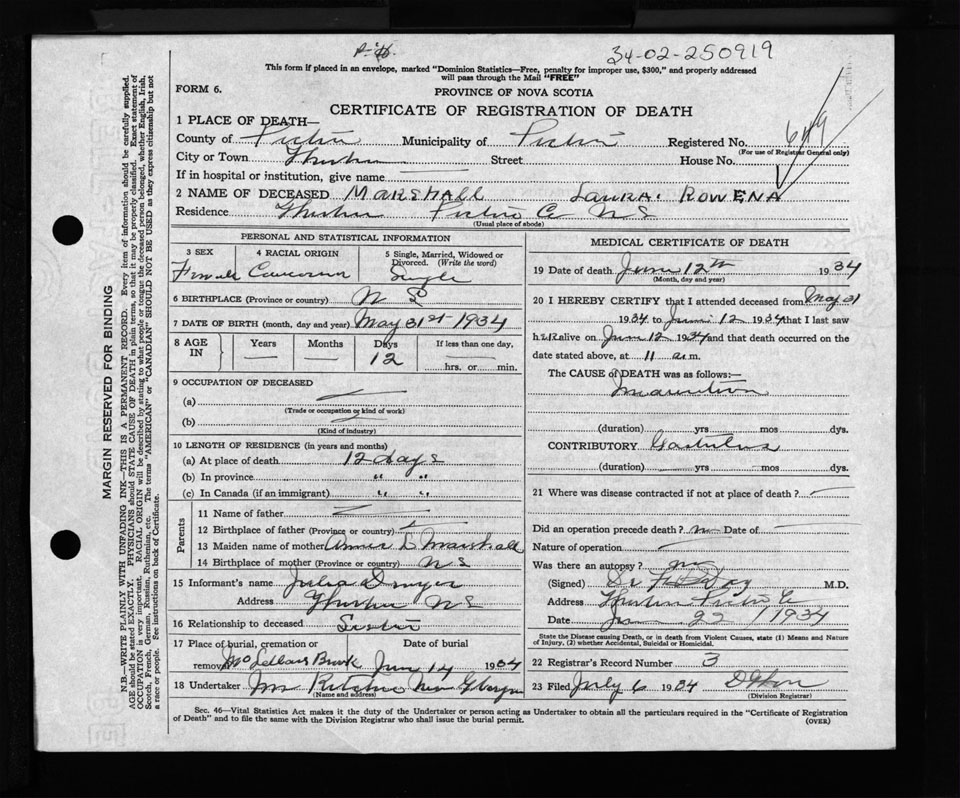 34-02-250919
This form if placed in an envelope, marked "Dominion Statistics—Free, penalty for improper use, $300," and properly addressed
will pass through the Mail "FREE"
FORM 6.
PROVINCE OF NOVA SCOTIA
CERTIFICATE OF REGISTRATION OF DEATH
1 PLACE OF DEATH—
County of Pictou Municipality of Pictou Registered No. 649
(For use of Registrar General only)
City or Town Thorburn Street House No.
If in hospital or institution, give name
2 NAME OF DECEASED MARSHALL LAURA ROWENA
Residence Thorburn Pictou Co NS
(Usual place of abode)
PERSONAL AND STATISTICAL INFORMATION
3 SEX Female
4 RACIAL ORIGIN
5 Single, Married, Widowed or Divorced. (Write the word) Single
6 BIRTHPLACE (Province or country) N S
7 DATE OF BIRTH (month, day and year) May 31st 1934
8 AGE IN Years Months Days If less than one day,
12 hrs. or min.
9 OCCUPATION OF DECEASED
(a)
(Trade or occupation or kind of work)
(b)
(Kind of industry)
10 LENGTH OF RESIDENCE (in years and months)
(a) At place of death 12 days
(b) In province " "
(c) In Canada (if an immigrant) " "
Parents
11 Name of father —
12 Birthplace of father (Province or country) —
13 Maiden name of mother Annie L Marshall
14 Birthplace of mother (Province or country) N S
15 Informant's name Julia Dwyer
Address Thorburn NS
16 Relationship to deceased Sister
17 Place of burial, cremation or Date of burial
removal McLellans Brook June 14 1934
18 Undertaker Jm Ritchie New Glasgow
(Name and address)
MEDICAL CERTIFICATE OF DEATH
19 Date of death June 12th 1934
(Month, day and year)
20 I HEREBY CERTIFY that I attended deceased from May 31
1934 to June 12 1934 that I last saw
her alive on June 12 1934 and that death occurred on the
date stated above, at 11 a.m.
The CAUSE of DEATH was as follows:—
Inanition
(duration) yrs mos dys.
CONTRIBUTORY
(duration) yrs mos dys.
21 Where was disease contracted if not at place of death? —
Did an operation precede death? no Date of —
Nature of operation —
Was there an autopsy? no
(Signed) Day M.D.
Address Thorburn Pictou Co
Date 22 1934
State the Disease causing Death, or in death from Violent Causes, state (1) Means and Nature
of Injury, (2) whether Accidental, Suicidal or Homicidal.
22 Registrar's Record Number 3
23 Filed July 6 1934
(Division Registrar)
Sec. 46—Vital Statistics Act makes it the duty of the Undertaker or person acting as Undertaker to obtain all the particulars required in the "Certificate of Registration
of Death" and to file the same with the Division Registrar who shall issue the burial permit.
(OVER)
MARGIN RESERVED FOR BINDING
N.B.—WRITE PLAINLY WITH UNFADING INK—THIS IS A PERMANENT RECORD. Every item of information should be carefully supplied.
AGE should be stated EXACTLY. PHYSICIANS should STATE CAUSE OF DEATH in plain terms, so that it may be properly classified. Exact statement of
OCCUPATION is very important. RACIAL ORIGIN will be described by stating to what people or tongue the deceased person belonged, whether English, Irish,
Scotch, French, German, Russian, Ruthenian, etc. The terms "AMERICAN" or "CANADIAN" SHOULD NOT BE USED as they express citizenship but not
a race or people. See instructions on back of Certificate.